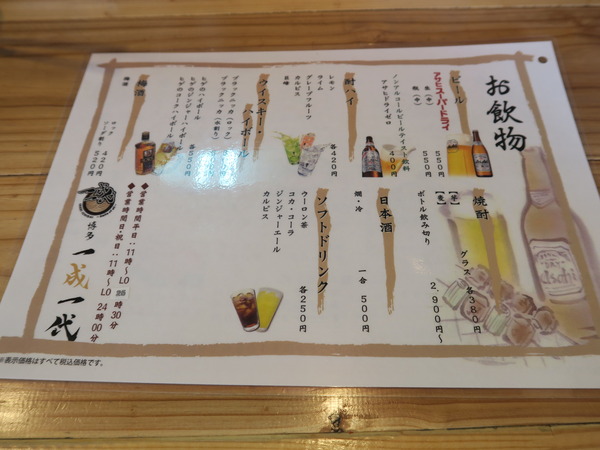 お飲物
ビール
アサヒスーパードライ
生(中) 550円
瓶(中) 550円
ノンアルコールビールテイスト飲料
アサヒドライゼロ 400円
酎ハイ
レモン
ライム
グレープフルーツ
カルピス
巨峰
各420円
ウイスキー・ハイボール
ブラックニッカ(ロック)
ブラックニッカ(水割り)
ヒゲのハイボール
ヒゲのジンジャーハイボール
ヒゲのコークハイボール
各550円
梅酒
梅酒
ロック 420円
ソーダ割り 520円
焼酎
【芋】
【麦】
グラス 各380円
ボトル飲み切り 2,900円~
日本酒
燗・冷
一合 500円
ソフトドリンク
ウーロン茶
コカ・コーラ
ジンジャーエール
カルピス
各250円
◆営業時間平日:11時~LO 時30分
◆営業時間土日・祝日:11時~LO 24時00分
博多
一成一代
Asahi
※表示価格はすべて税込価格です。